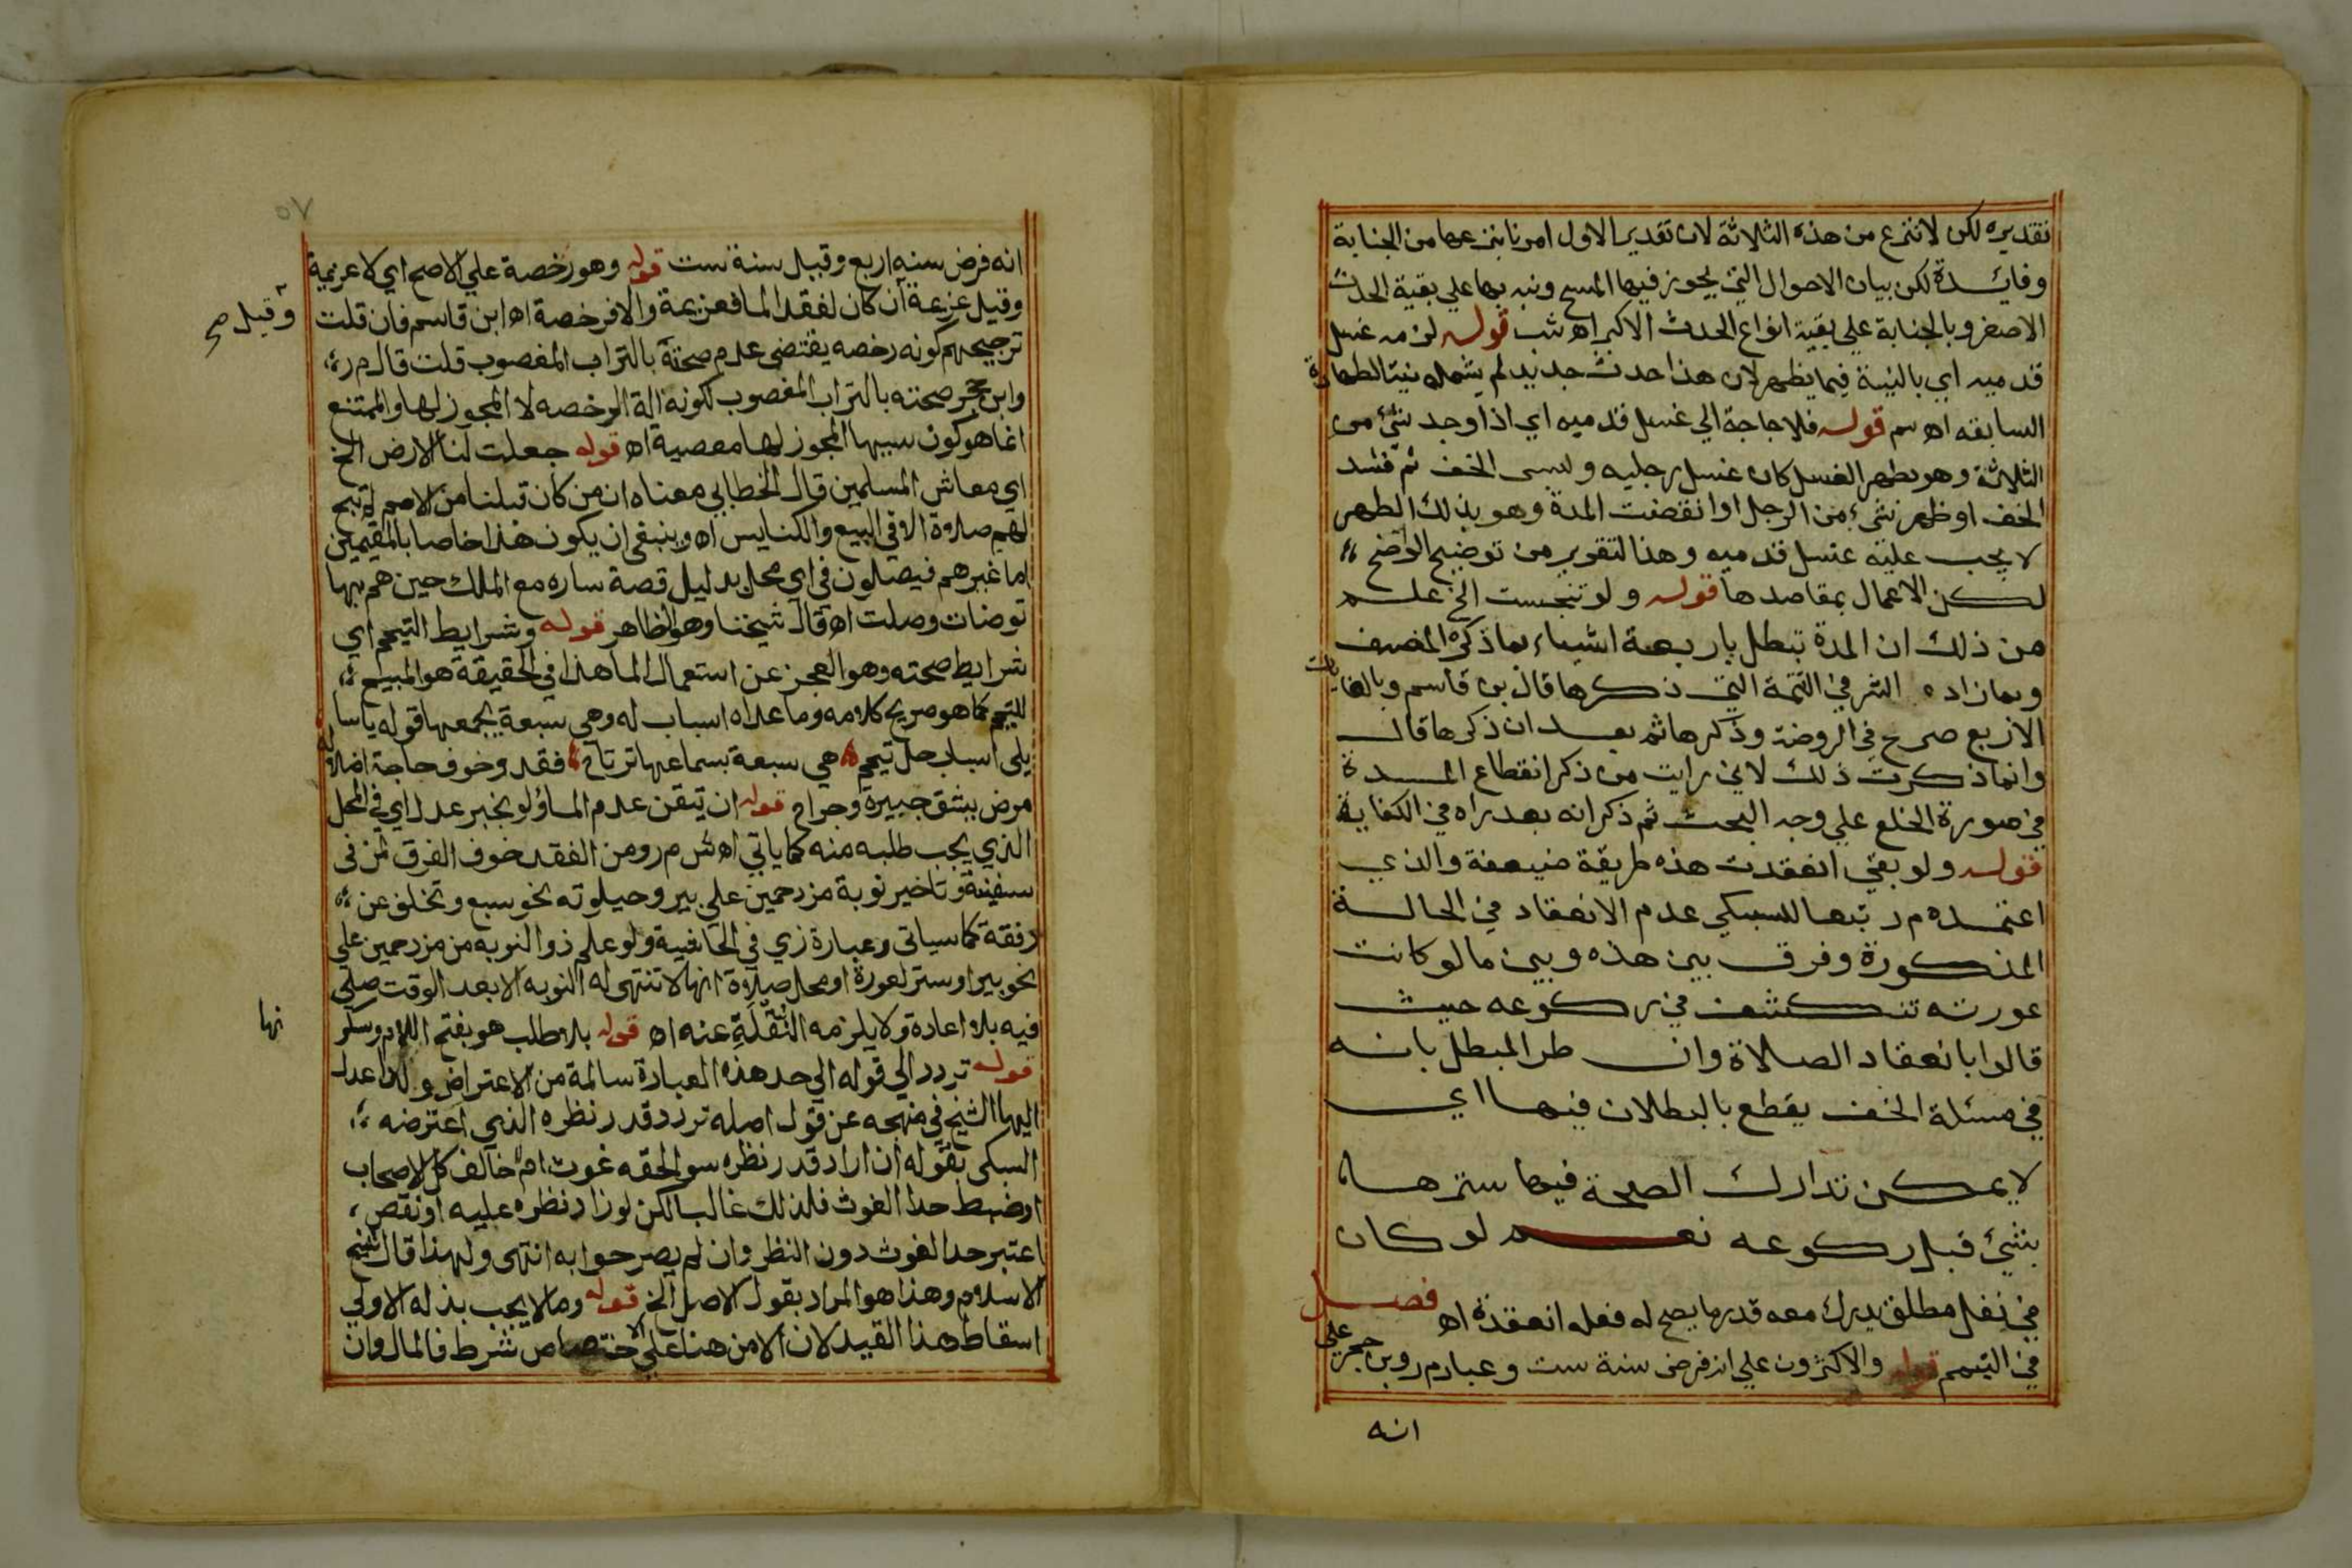 تقديره لكن لا تنزع من هذه الثلاثة لان تقدير الاول امرنا بنزعها من الجنابة
وفائدة لكن بيان الاحوال التي يجوز فيها المسح ونبه بها علي بقية الحدث
الاصغر وبالجنابة علي بقية انواع الحدث الاكبر اه شب قوله لزمه غسل
قدميه اي بالنية فيما يظهر لان هذا حدث جديد لم يشمله نية الطهارة
السابقه اه سم قوله فلا حاجة الي غسل قدميه اي اذا وجد شئ من
الثلاثة وهو بطهر الغسل كان غسل رجليه ولبس الخف ثم فسد
الخف او ظهر شئ من الرجل او انقضت المدة وهو بذلك الطهر
لا يجب عليه غسل قدميه وهذا لتقرير من توضيح الواضح
لكن الاعمال بمقاصدها قوله ولو تنجست الخ علم
من ذلك ان المدة تبطل باربعة اشياء بما ذكره المصنف
وبما زاده الشر في التتمة التي ذكرها قال بن قاسم وبالغايات
الاربع صرح في الروضة وذكرها ثم بعد ان ذكرها قال
وانما ذكرت ذلك لاني رايت من ذكر انقطاع المدة
في صورة الخلع علي وجه البحث ثم ذكر انه بعد راه في الكفاية
قوله ولو بقي انعقدت هذه طريقة ضيعفة والذي
اعتمده م ر تبعا للسبكي عدم الانعقاد في الحالة
المذكورة وفرق بين هذه وبين ما لو كانت
عورته تنكشف في ركوعه حيث
قالوا بانعقاد الصلاة وان طر المبطل بانه
في مسئلة الخف يقطع بالبطلان فيها اي
لا يمكن تدارك الصحة فيها سترها
بشئ قبل ركوعه نعم لو كان
في نفل مطلق يدرك معه قدر ما يصح له فعله انعقدة اه فصل
في التيمم قوله والاكثرون علي انه فرض سنة ست وعبارم ر وبن حجر علي
انه
٥٧
انه فرض سنه اربع وقيل سنة ست قوله وهو رخصة علي الاصح اي لا عزيمة
وقيل عزيمة ان كان لفقد الما فعزيمة والا فرخصة اه ابن قاسم فان قلت
وقيل صح
ترجيحهم كونه رخصه يقتضى عدم صحته بالتراب المغصوب قلت قال م ر
وابن حجر صحته بالتراب المغصوب لكونه الة الرخصه لا المجوز لها والممتنع
انما هو كون سببها المجوز لها معصية اه قوله جعلت لنا الارض الخ
اي معاش المسلمين قال الخطابي معناه ان من كان قبلنا من الامم لم تبح
لهم صلاة الا في البيع والكنايس اه وينبغى ان يكون هذا خاصا بالمقيمين
اما غيرهم فيصلون في اي محل بدليل قصة ساره مع الملك حين هم بها
توضات وصلت اه قال شيخنا وهو الظاهر قوله وشرايط التيمم اي
شرايط صحته وهو العجز عن استعمال الما هذا في الحقيقة هو المبيح
للتيمم كما هو صريح كلامه وما عداه اسباب له وهي سبعة يجمعها قوله ياسا
يلى اسباب حل تيمم هي سبعة بسماعها ترتاح فقد وخوف حاجة اضلاله
مرض يشق جبيرة وجراح قوله ان تيقن عدم الماؤ لو بخبر عدل اي في المحل
الذي يجب طلبه منه كما ياتي اه ش م ر ومن الفقد خوف الغرق لمن فى
سفينة وتاخير نوبة مزدحمين علي بير وحيلوته نحو سبع وتخلف عن
رفقة كما سياتى وعبارة زي في الحاشية ولو علم ذوالنوبه من مزدحمين علي
نحو بير او ستر لعورة او محل صلاة انها لا تنتهى له النوبه الا بعد الوقت صلى
فيه بلا اعادة ولا يلزمه النقلة عنه اه قوله بلا طلب هو بفتح اللام وسكو
نها
قوله تردد الي قوله الي حد هذه العبارة سالمة من الاعتراض ولذا عدل
اليها الشيخ في منهجه عن قول اصله تردد قدر نظره الذي اعترضه
السبكى بقوله ان اراد قدر نظره سوالحقه غوث ام لا خالف كل الاصحاب
اوضبط حد الغوث فلذلك غالبا لكن لو زاد نظره عليه او نقص
اعتبر حد الغوث دون النظر وان لم يصرحوا به انتهى ولهذا قال شيخ
الاسلام وهذا هو المراد بقول الاصل الخ قوله وما لا يجب بذله الاولي
اسقاط هذا القيد لان الامن هنا علي الاختصاص شرط فالمال وان